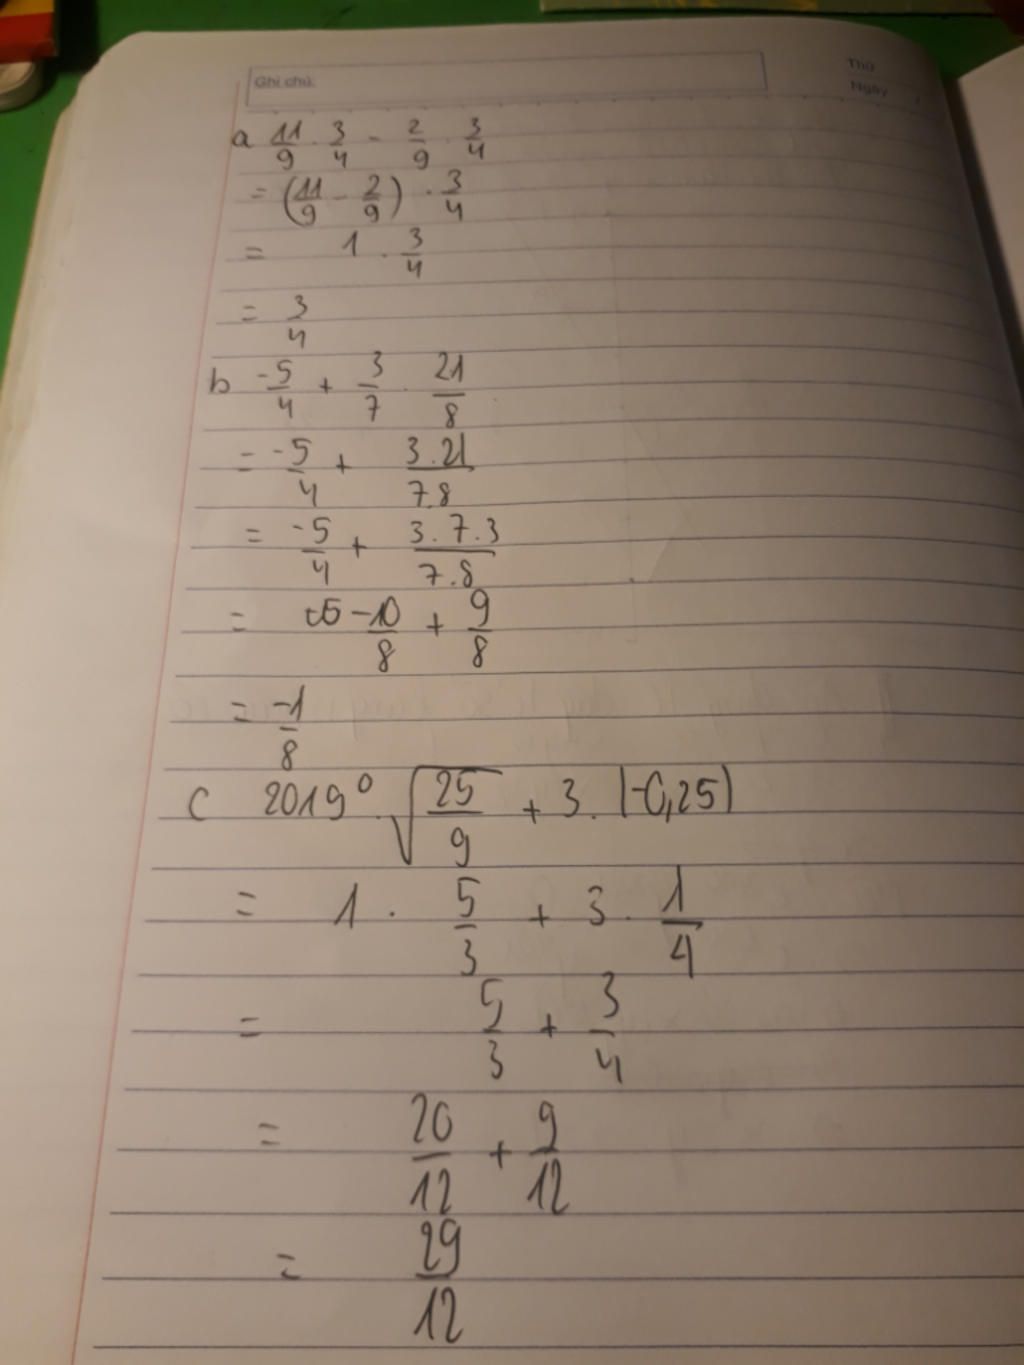 Ghi chú:
Thứ
Ngày /
a 11/9 . 3/4 - 2/9 . 3/4
= (11/9 - 2/9) . 3/4
= 1 . 3/4
= 3/4
b -5/4 + 3/7 . 21/8
= -5/4 + 3.21/7.8
= -5/4 + 3.7.3/7.8
= -10/8 + 9/8
= -1/8
c 2019⁰ . √(25/9) + 3 . |-0,25|
= 1 . 5/3 + 3 . 1/4
= 5/3 + 3/4
= 20/12 + 9/12
= 29/12